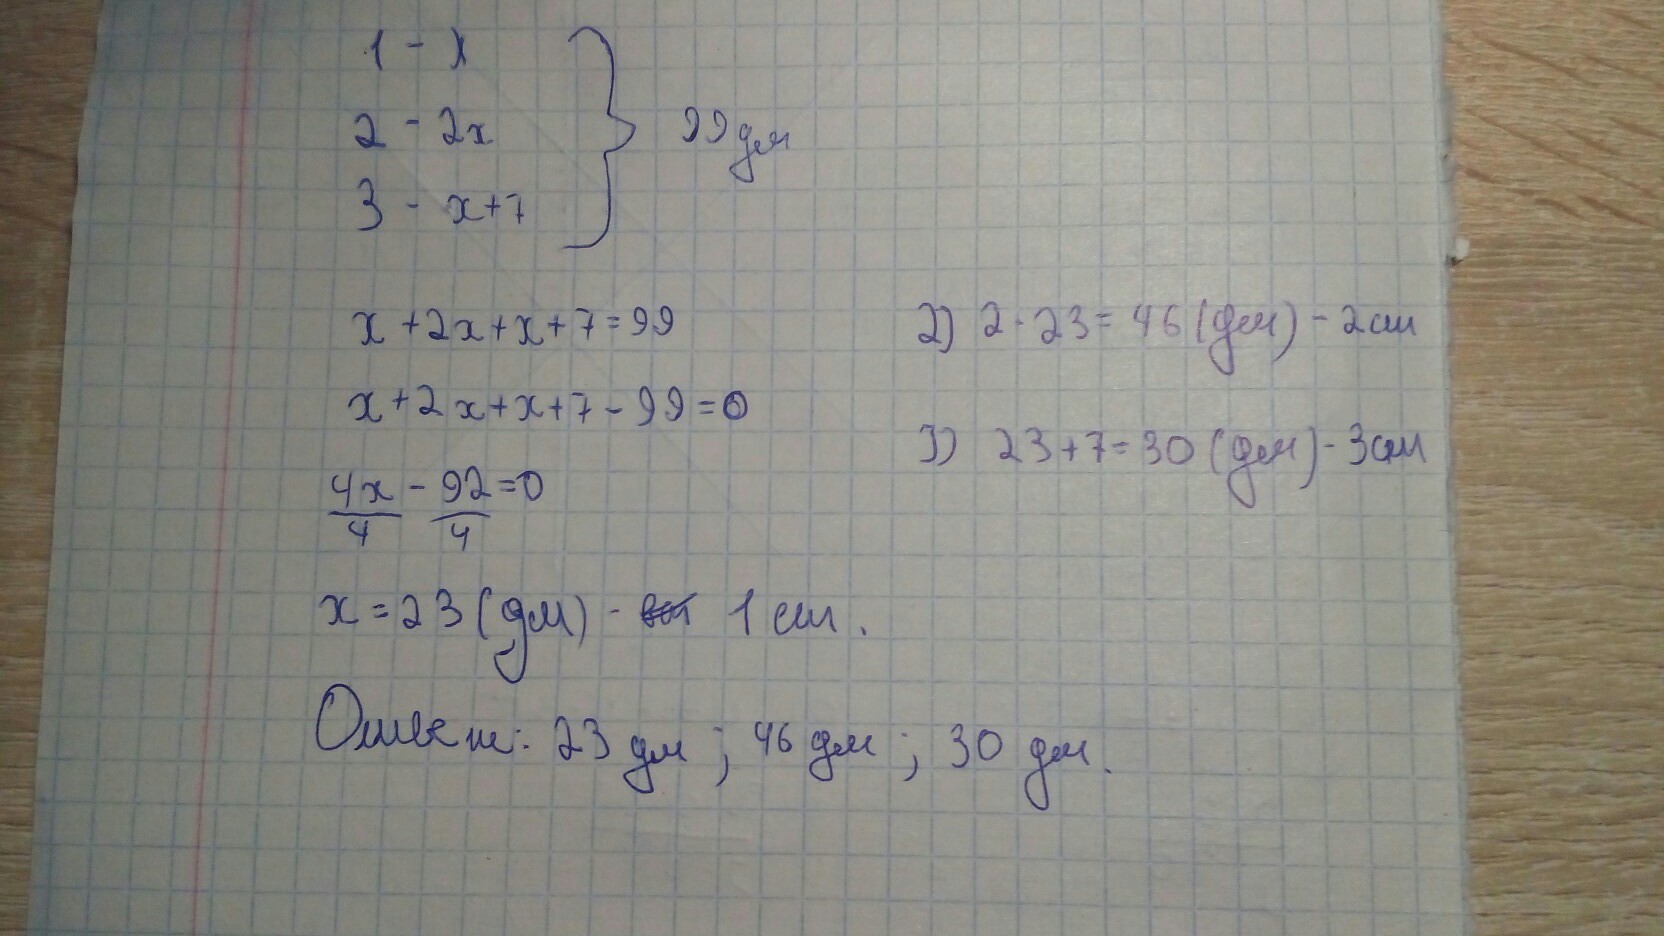 1 - x
2 - 2x
3 - x+7
99 дм
x+2x+x+7=99
x+2x+x+7-99=0
4x/4 - 92/4=0
x=23(дм) - 1 сш.
2) 2·23=46(дм) - 2сш
3) 23+7=30(дм) - 3сш
Ответ: 23 дм ; 46 дм ; 30 дм.